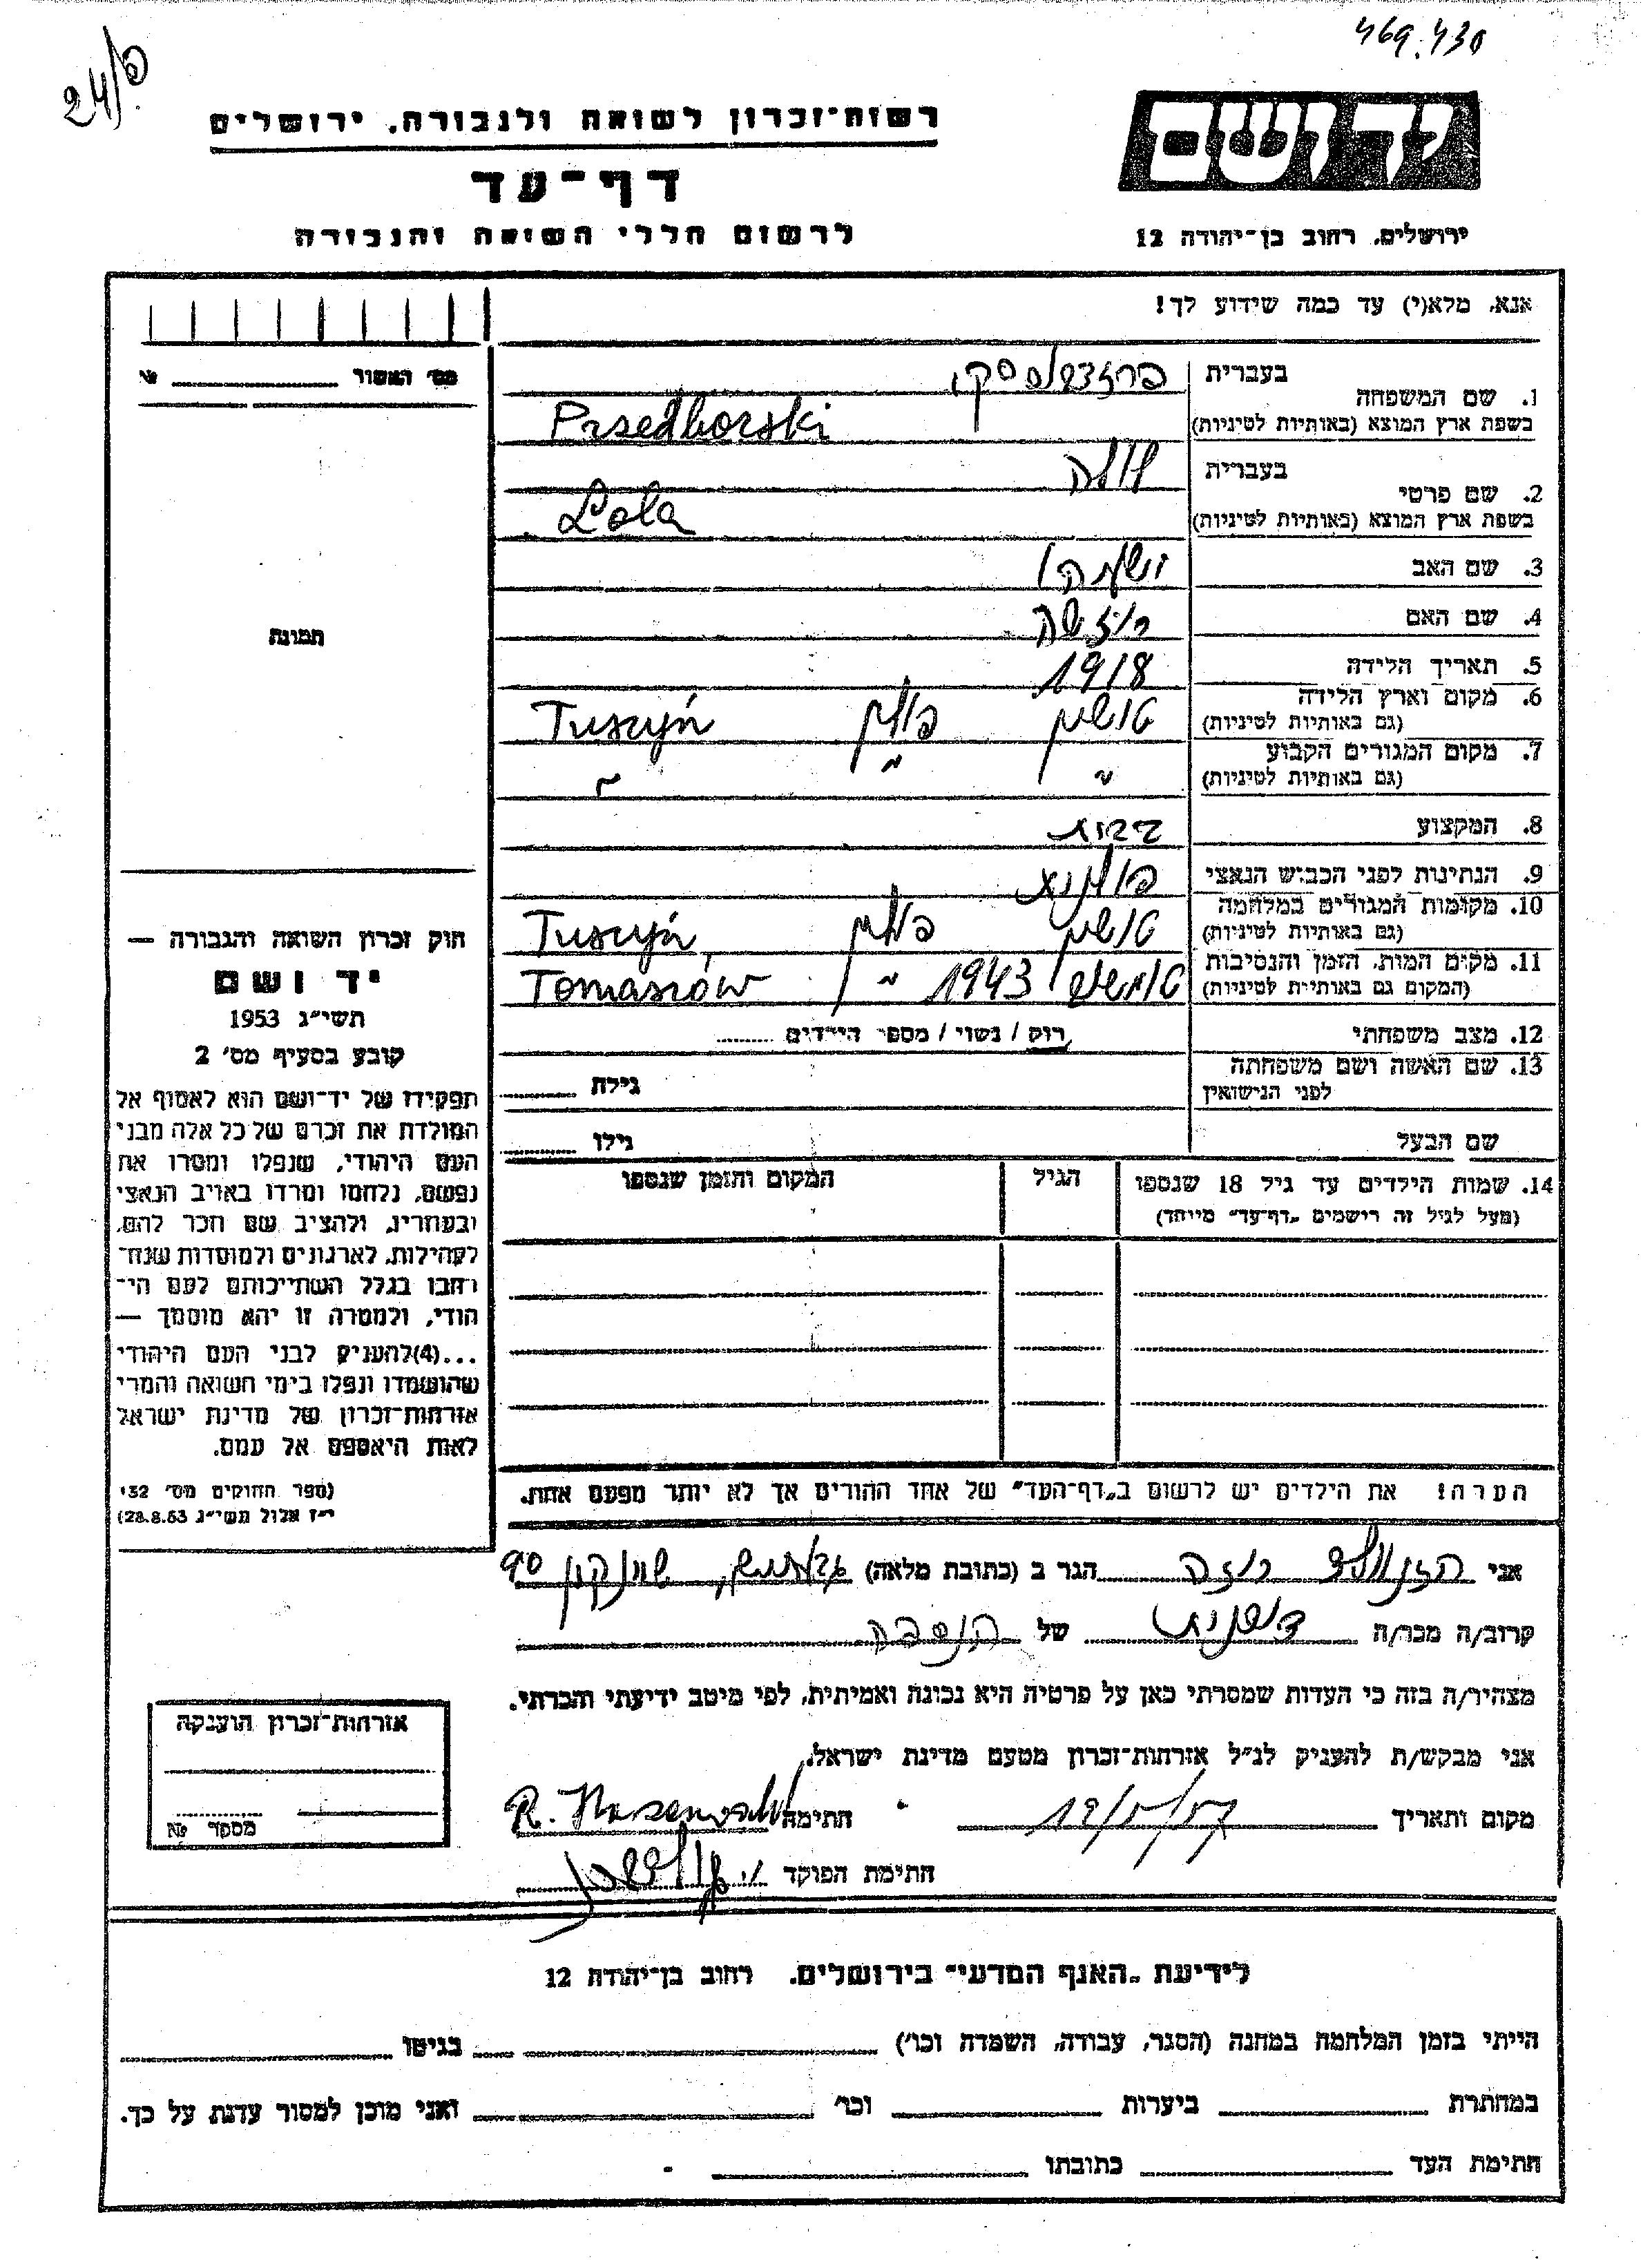 469.430
24/פ
ידושם
רשות־זכרון לשואה ולגבורה, ירושלים
דף־עד
לרשום חללי השואה והגבורה
ירושלים, רחוב בן־יהודה 12
אנא, מלא(י) עד כמה שידוע לך!
מס׳ האשור №
תמונה
1. שם המשפחה
בעברית
בשפת ארץ המוצא (באותיות לטיניות) Przedborski
2. שם פרטי
בעברית לולה
בשפת ארץ המוצא (באותיות לטיניות) Lola
3. שם האב
4. שם האם
5. תאריך הלידה 1918
6. מקום וארץ הלידה טושין פולין Tuszyń
(גם באותיות לטיניות)
7. מקום המגורים הקבוע " " "
(גם באותיות לטיניות)
8. המקצוע
9. הנתינות לפני הכבוש הנאצי פולנית
10. מקומות המגורים במלחמה טושין פולין Tuszyń,
(גם באותיות לטיניות)
11. מקום המות, הזמן והנסיבות טומשוב 1943 " Tomaszów
(המקום גם באותיות לטיניות)
12. מצב משפחתי רוק / נשוי / מספר הילדים
13. שם האשה ושם משפחתה
לפני הנישואין גילה
שם הבעל גילו
14. שמות הילדים עד גיל 18 שנספו הגיל המקום והזמן שנספו
(מעל לגיל זה רישמים „דף־עד" מיוחד)
הערה! את הילדים יש לרשום ב„דף־העד" של אחד ההורים אך לא יותר מפעם אחת.
חוק זכרון השואה והגבורה —
יד ושם
תשי״ג 1953
קובע בסעיף מס׳ 2
תפקידו של יד־ושם הוא לאסוף אל
המולדת את זכרם של כל אלה מבני
העם היהודי, שנפלו ומסרו את
נפשם, נלחמו ומרדו באויב הנאצי
ובעוזריו, ולהציב שם וזכר להם,
לקהילות, לארגונים ולמוסדות שנח־
רבו בגלל השתייכותם לעם הי־
הודי, ולמטרה זו יהא מוסמך —
...(4)להעניק לבני העם היהודי
שהושמדו ונפלו בימי השואה והמרי
אזרחות־זכרון של מדינת ישראל
לאות היאספם אל עמם.
(ספר החוקים מס׳ 132
י״ז אלול תשי״ג 28.8.53)
אני רוזה הגר ב (כתובת מלאה) 90
קרוב/ה מכר/ה של הנספה
מצהיר/ה בזה כי העדות שמסרתי כאן על פרטיה היא נכונה ואמיתית, לפי מיטב ידיעתי והכרתי.
אני מבקש/ת להעניק לנ״ל אזרחות־זכרון מטעם מדינת ישראל.
מקום ותאריך 12/5/57 חתימה
חתימת הפוקד
אזרחות־זכרון הוענקה
מספר №
לידיעת „האגף המדעי" בירושלים, רחוב בן־יהודה 12
הייתי בזמן המלחמה במחנה (הסגר, עבודה, השמדה וכו׳) בגיטו
במחתרת ביערות וכו׳ ואני מוכן למסור עדות על כך.
חתימת העד כתובתו